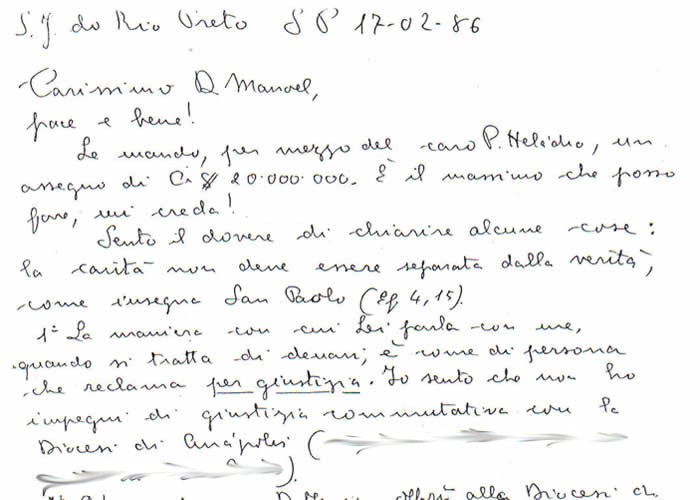 S. J. do Rio Preto SP 17-02-86
Carissimo D. Manoel,
pace e bene!
Le mando, per mezzo del caro P. Helidio, un
assegno di Cr $ 20.000.000. È il massimo che posso
fare, mi creda!
Sento il dovere di chiarire alcune cose:
la carità non deve essere separata dalla verità,
come insegna San Paolo (Ef 4,15).
1º La maniera con cui Lei parla con me,
quando si tratta di denari, è come di persona
che reclama per giustizia. Io sento che non ho
impegni di giustizia commutativa con la
Diocesi di Anápolis (
).
D. alla Diocesi di